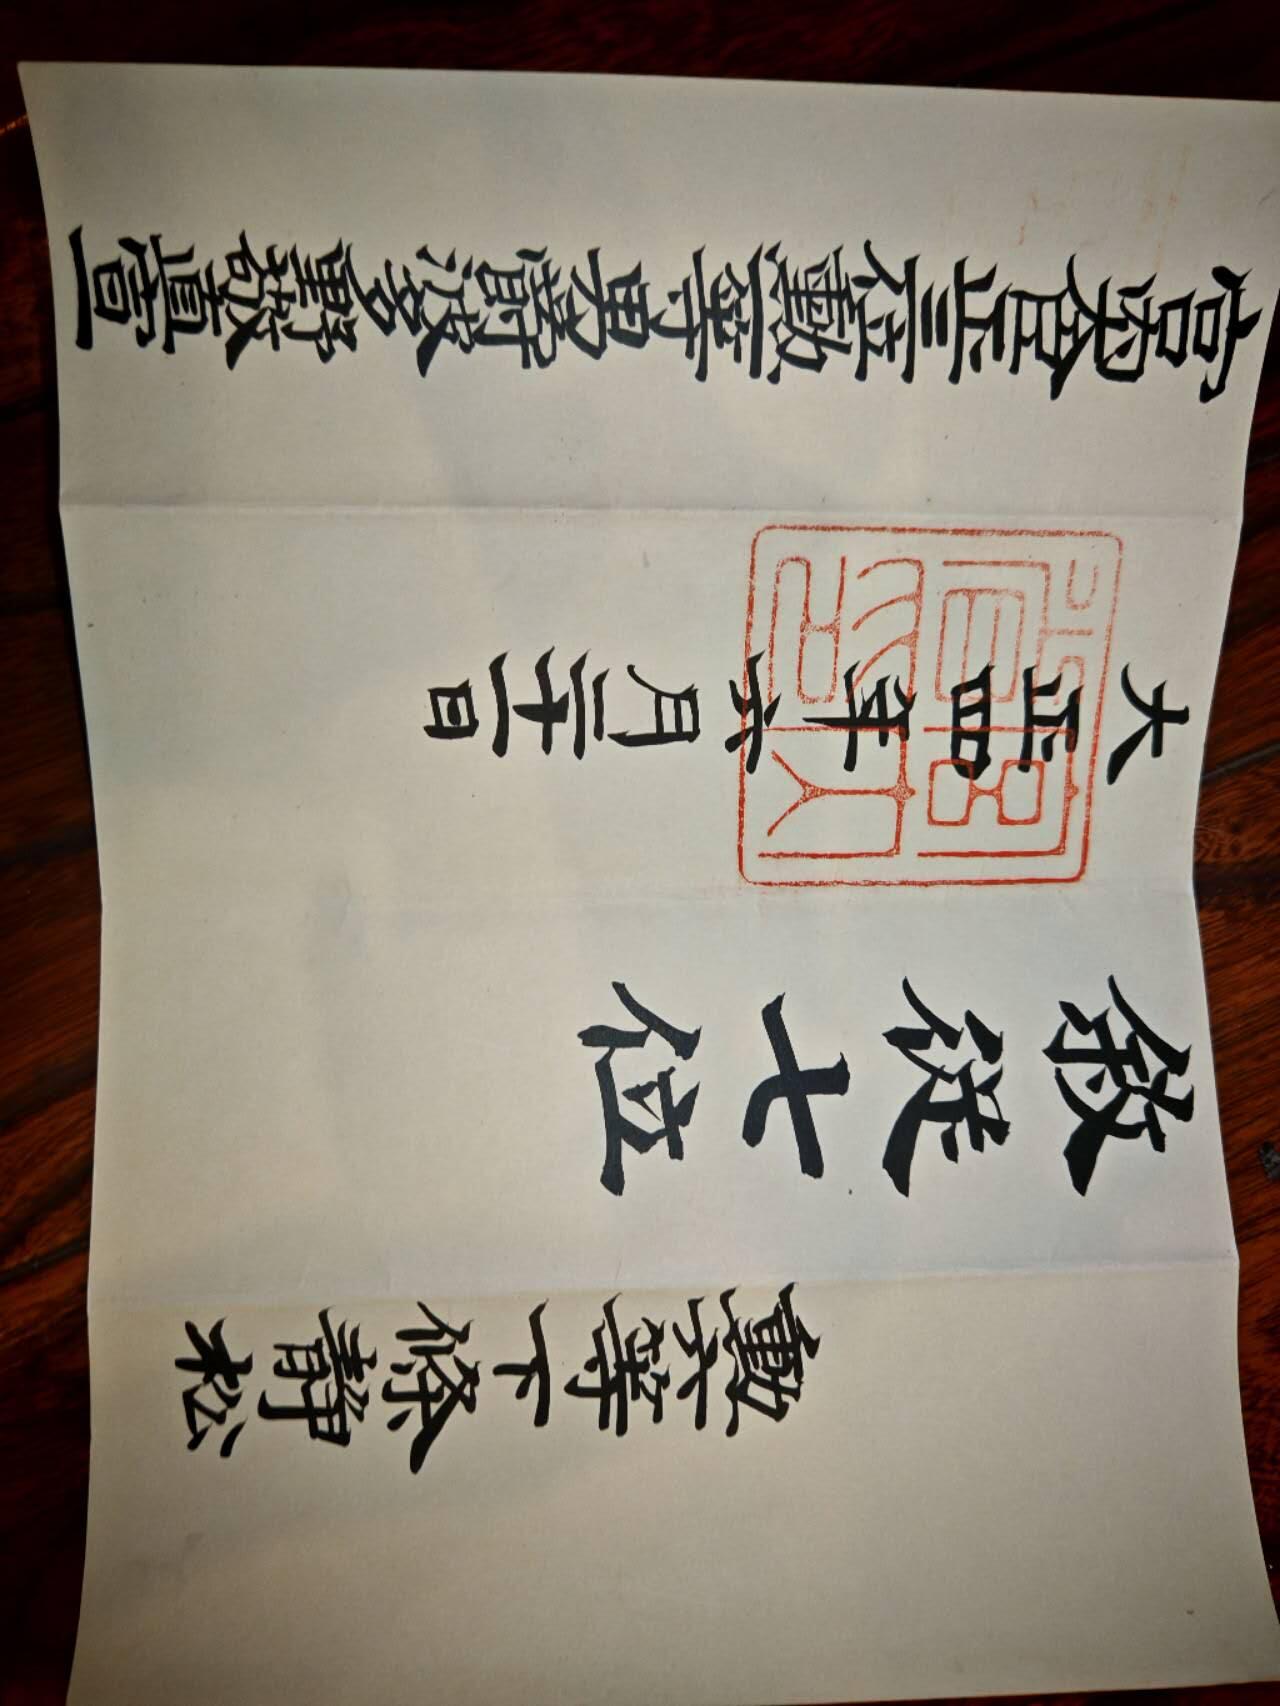 勲六等下條靜松
敍従七位
大正四年六月二十一日
宮內大臣正三位勲一等男爵波多野敬直宣